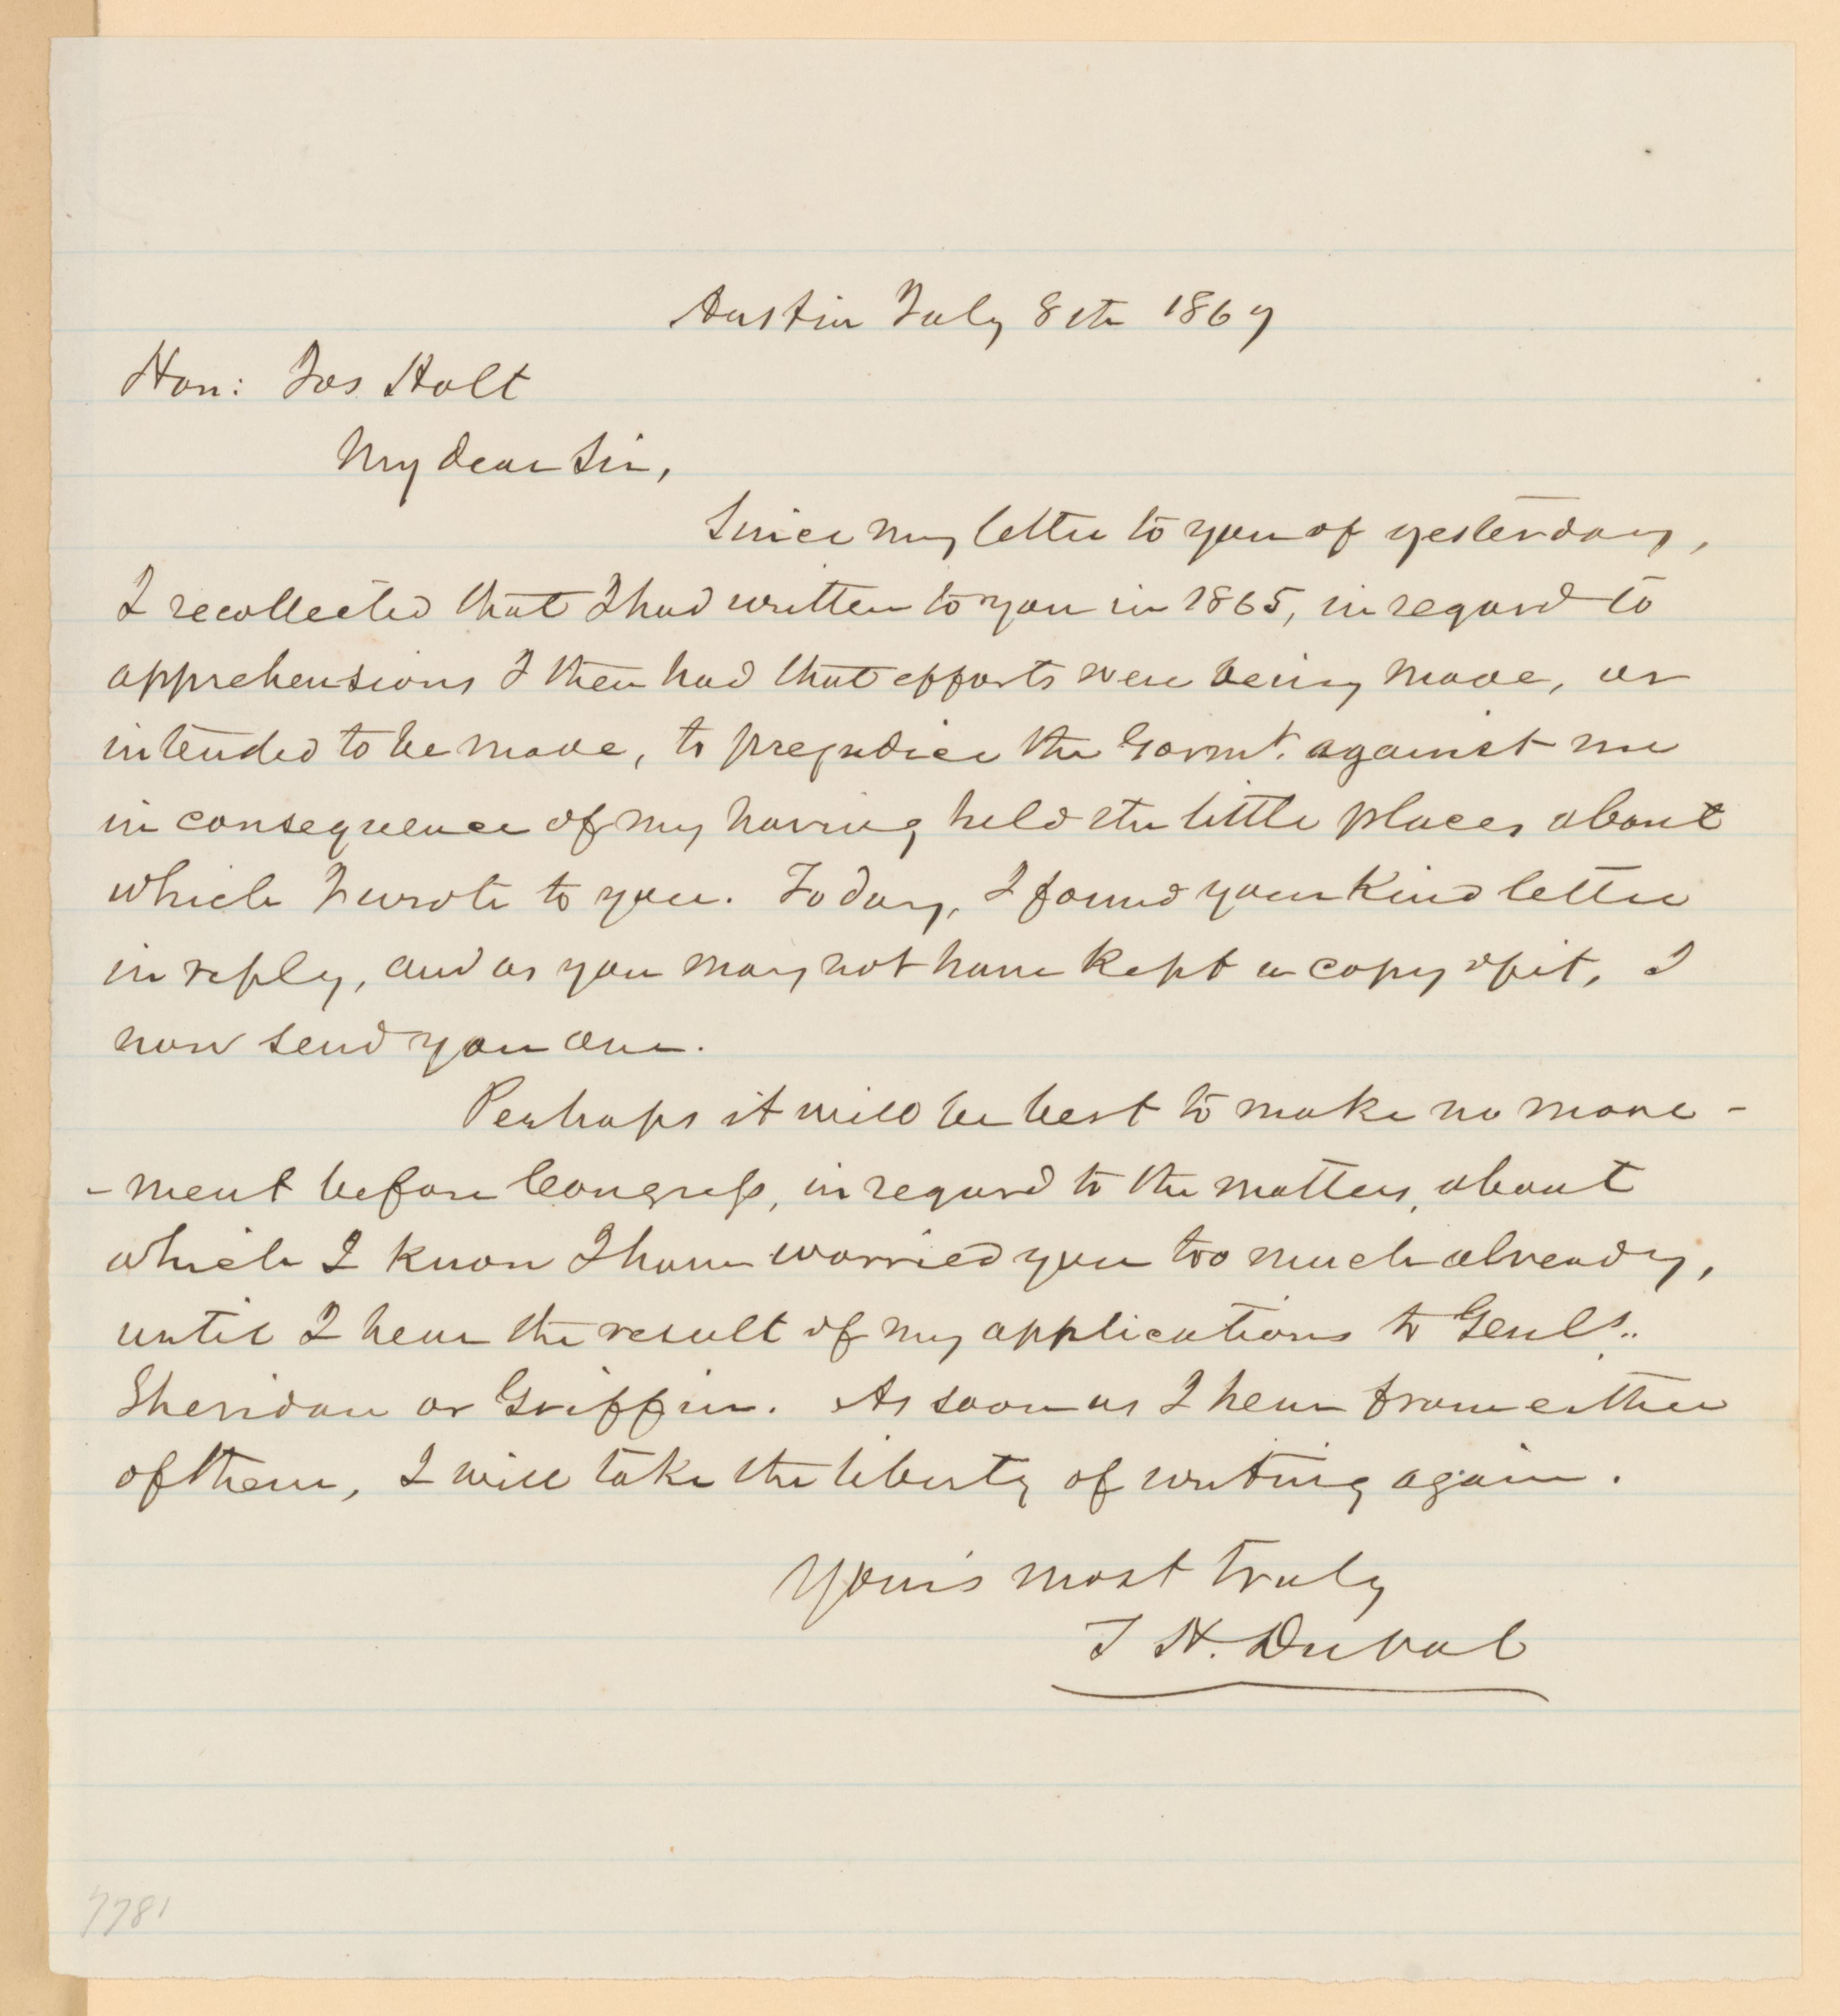 Austin July 8th 1867
Hon: Jos Holt
My dear Sir,
Since my letter to you of yesterday,
I recollected that I had written to you in 1865, in regard to
apprehensions I then had that efforts were being made, or
intended to be made, to prejudice the Govmt. against me
in consequence of my having held the little places about
which I wrote to you. Today, I found your kind letter
in reply, and as you may not have kept a copy of it, I
now send you one.
Perhaps it will be best to make no move-
-ment before Congress, in regard to the matters, about
which I know I have worried you too much already,
until I hear the result of my applications to Genls.
Sheridan or Griffin. As soon as I hear from either
of them, I will take the liberty of writing again.
Your's most truly
T H. Duval
7781